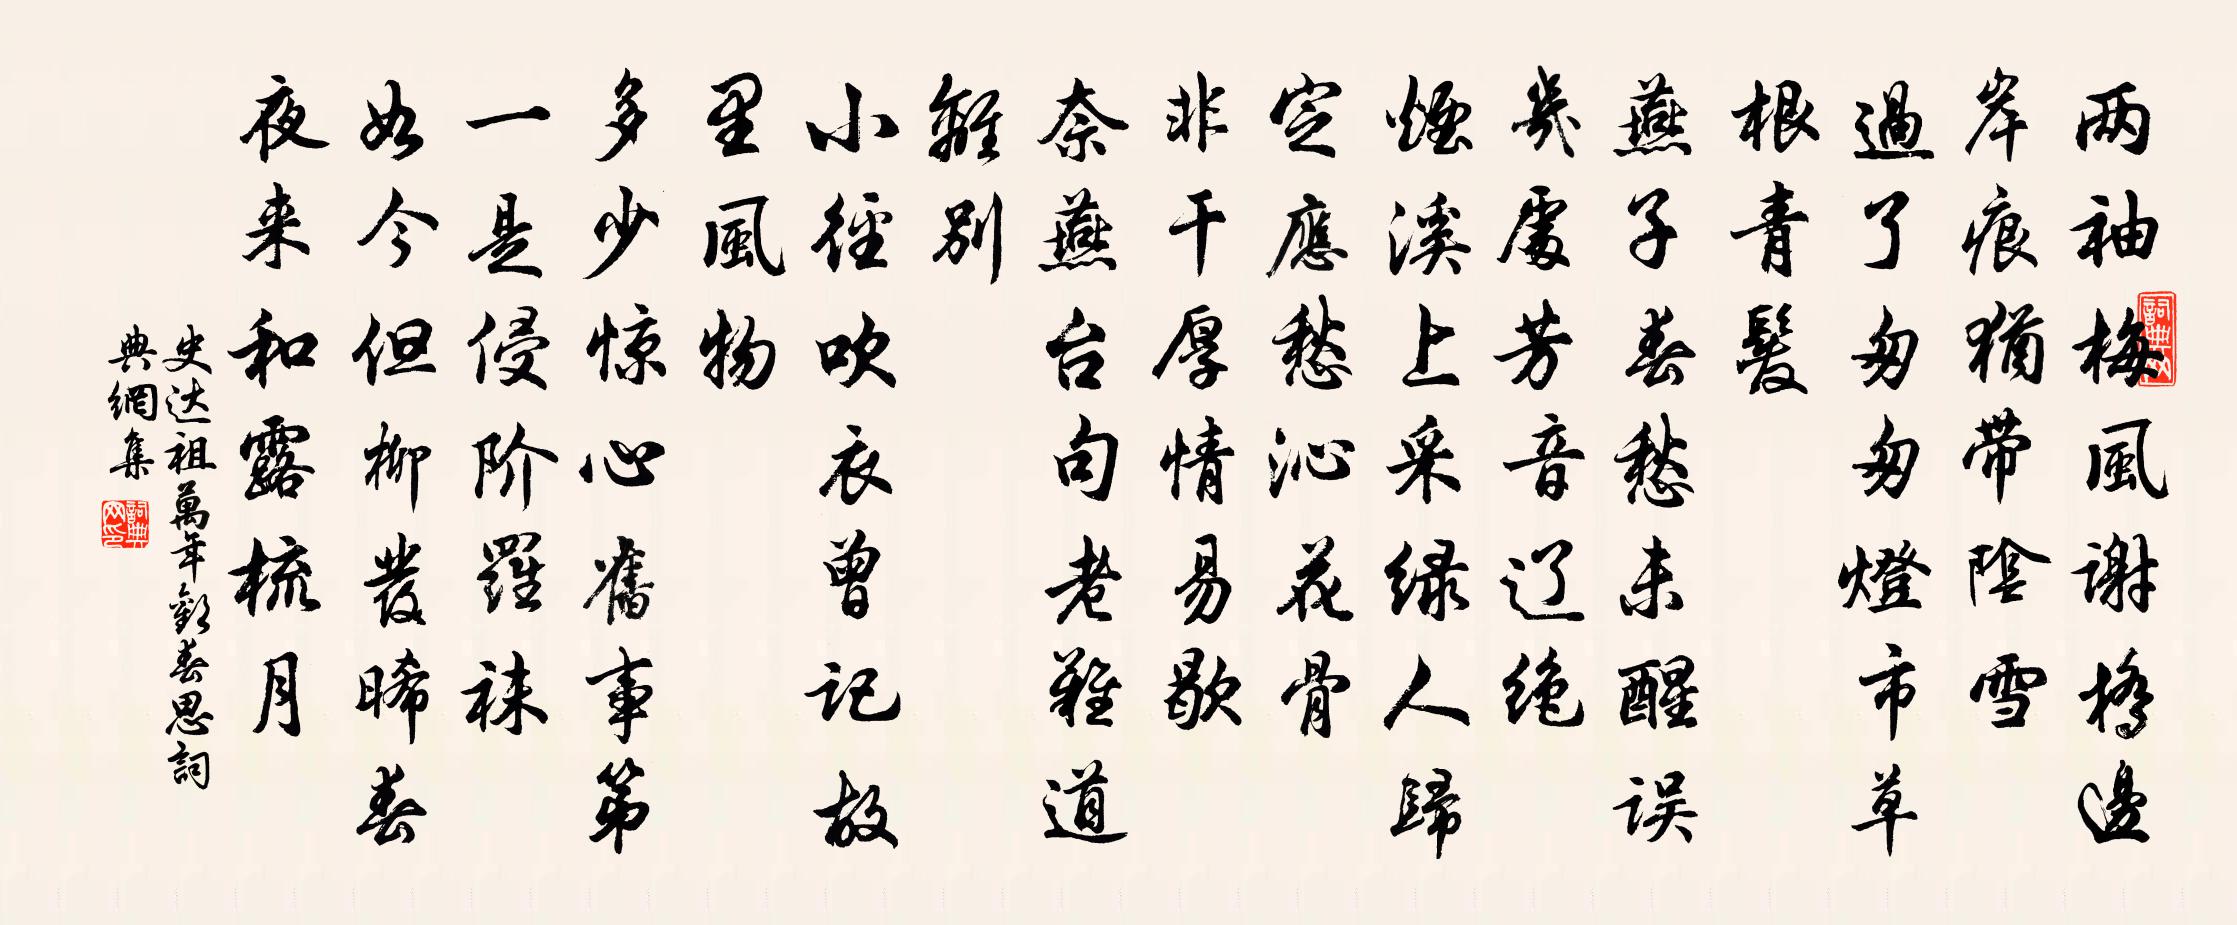 詞典网
两袖梅風谢橋邊
岸痕猶带陰雪
過了匆匆燈市草
根青髮
燕子春愁未醒误
幾處芳音辽绝
煙溪上采绿人歸
定應愁沁花骨
非干厚情易歇
奈燕台句老難道
離别
小徑吹衣曾记故
里風物
多少惊心舊事第
一是侵阶羅袜
如今但柳發晞春
夜来和露梳月
史达祖萬年歡春思詞
典網集
詞典网印